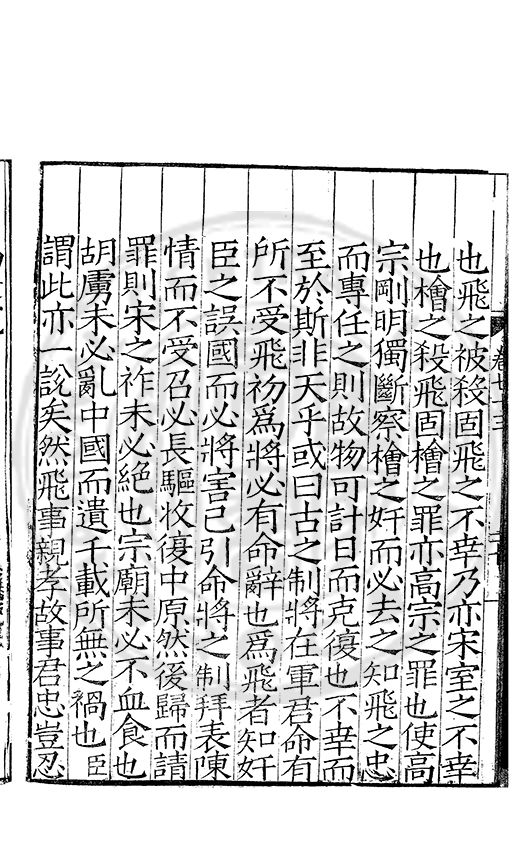 也飛之被殺固飛之不幸乃亦宋室之不幸
也檜之殺飛固檜之罪亦高宗之罪也使高
宗剛明獨斷察檜之奸而必去之知飛之忠
而專任之則故物可計日而克復也不幸而
至於斯非天乎或曰古之制將在軍君命有
所不受飛初爲將必有命辭也爲飛者知奸
臣之誤國而必將害己引命將之制拜表陳
情而不受召必長驅收復中原然後歸而請
罪則宋之祚未必絕也宗廟未必不血食也
胡虜未必亂中國而遺千載所無之禍也臣
謂此亦一說矣然飛事親孝故事君忠豈忍